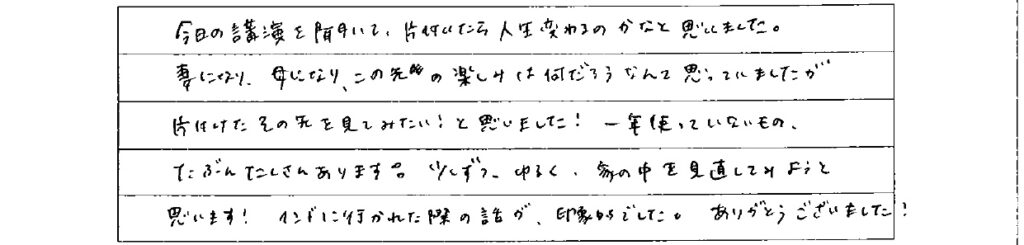 今日の講演を聞いて、片付いたら人生変わるのかなと思いました。
妻になり、母になり、この先の楽しみは何だろうなんて思っていましたが
片付けたその先を見てみたい!と思いました!一年使っていないもの、
たぶんたくさんあります。少しずつ、ゆるく、家の中を見直してみようと
思います!インドに行かれた際の話が、印象的でした。ありがとうございました!